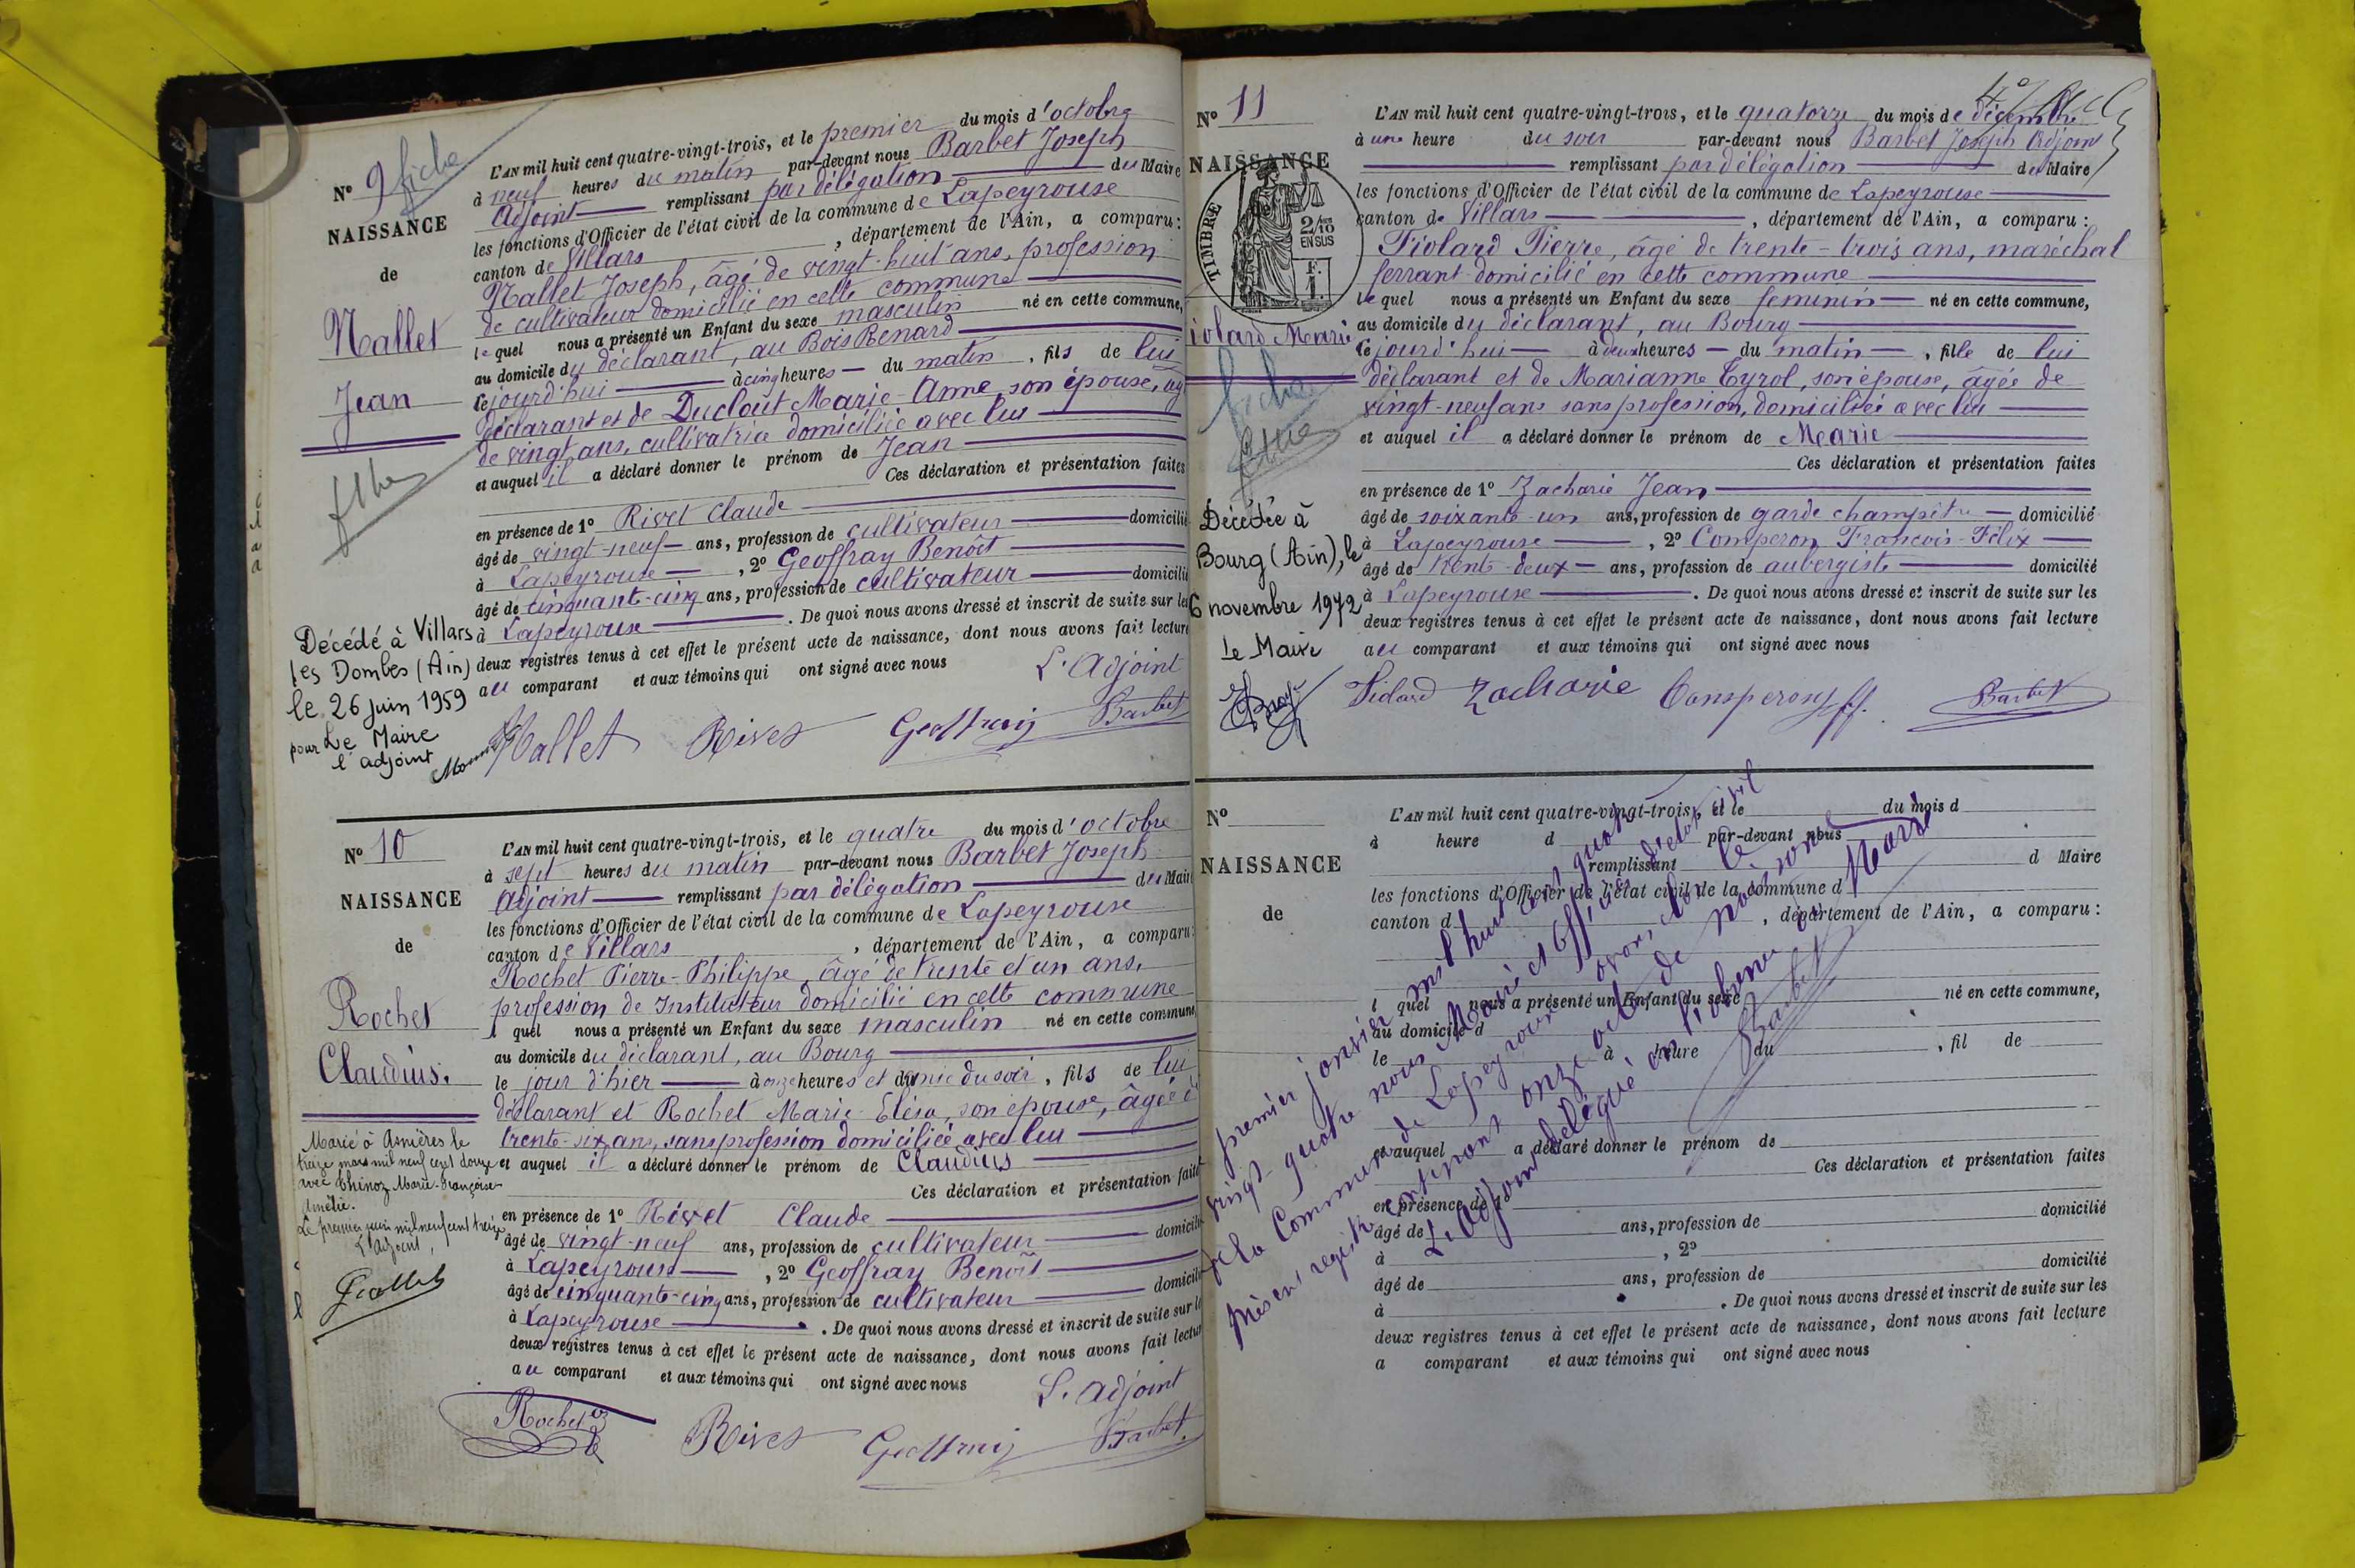 Nº 9 fiche
NAISSANCE
de
Mallet
Jean
L'AN mil huit cent quatre-vingt-trois, et le premier du mois d'octobre
à neuf heures du matin par-devant nous Barbet Joseph
Adjoint remplissant par délégation du Maire
les fonctions d'Officier de l'état civil de la commune de Lapeyrouse
canton de Villars , département de l'Ain, a comparu :
Mallet Joseph, âgé de vingt-huit ans, profession
de cultivateur domicilié en cette commune
lequel nous a présenté un Enfant du sexe masculin né en cette commune,
au domicile du déclarant, au Bois Renard
cejourd'hui à cinq heures du matin , fils de lui
déclarant et de Duclout Marie-Anne son épouse, âg
de vingt ans, cultivatrice domiciliée avec lui
et auquel il a déclaré donner le prénom de Jean
Ces déclaration et présentation faites
en présence de 1º Rivet Claude
âgé de vingt-neuf ans, profession de cultivateur domicilié
à Lapeyrouse , 2º Geoffray Benoît
âgé de cinquante-cinq ans, profession de cultivateur domicilié
à Lapeyrouse . De quoi nous avons dressé et inscrit de suite sur les
deux registres tenus à cet effet le présent acte de naissance, dont nous avons fait lecture
au comparant et aux témoins qui ont signé avec nous
L'Adjoint
Mallet Rivet Geoffray Barbet
Décédé à Villars
les Dombes (Ain)
le 26 juin 1959
pour Le Maire
l'adjoint
Nº 10
NAISSANCE
de
Rochet
Claudius.
L'AN mil huit cent quatre-vingt-trois, et le quatre du mois d'octobre
à sept heures du matin par-devant nous Barbet Joseph
Adjoint remplissant par délégation du Maire
les fonctions d'Officier de l'état civil de la commune de Lapeyrouse
canton de Villars , département de l'Ain, a comparu :
Rochet Pierre-Philippe, âgé de trente et un ans,
profession de Instituteur domicilié en cette commune
l quel nous a présenté un Enfant du sexe masculin né en cette commune,
au domicile du déclarant, au Bourg
le jour d'hier à onze heures et demie du soir , fils de lui
déclarant et Rochet Marie-Elisa, son épouse, âgée d
trente-six ans, sans profession domiciliée avec lui
et auquel il a déclaré donner le prénom de Claudius
Ces déclaration et présentation faites
en présence de 1º Rivet Claude
âgé de vingt-neuf ans, profession de cultivateur domicilié
à Lapeyrouse , 2º Geoffray Benoît
âgé de cinquante-cinq ans, profession de cultivateur domicilié
à Lapeyrouse . De quoi nous avons dressé et inscrit de suite sur les
deux registres tenus à cet effet le présent acte de naissance, dont nous avons fait lecture
au comparant et aux témoins qui ont signé avec nous
L'adjoint
Rochet Rivet Geoffray Barbet
Marié à Asnières le
treize mars mil neuf cent douze
avec Thénoz Marie-Françoise
Amélie.
Le premier juin mil neuf cent treize
L'Adjoint,
Nº 11
NAISSANCE
TIMBRE
2/10
EN SUS
F.
1
iolard Marie
fiche
L'AN mil huit cent quatre-vingt-trois, et le quatorze du mois de décembre
à une heure du soir par-devant nous Barbet Joseph Adjoint
remplissant par délégation du Maire
les fonctions d'Officier de l'état civil de la commune de Lapeyrouse
canton de Villars , département de l'Ain, a comparu :
Fiolard Pierre, âgé de trente-trois ans, maréchal
ferrant domicilié en cette commune
lequel nous a présenté un Enfant du sexe feminin né en cette commune,
au domicile du déclarant, au Bourg
cejourd'hui à deux heures du matin , fille de lui
déclarant et de Marianne Tyrol, son épouse, âgée de
vingt-neuf ans sans profession, domiciliée avec lui
et auquel il a déclaré donner le prénom de Marie
Ces déclaration et présentation faites
en présence de 1º Zacharie Jean
âgé de soixante-un ans, profession de garde champêtre domicilié
à Lapeyrouse , 2º Comperon François-Félix
âgé de trente-deux ans, profession de aubergiste domicilié
à Lapeyrouse . De quoi nous avons dressé et inscrit de suite sur les
deux registres tenus à cet effet le présent acte de naissance, dont nous avons fait lecture
au comparant et aux témoins qui ont signé avec nous
Fiolard Zacharie Comperon ff. Barbet
Décédée à
Bourg (Ain), le
6 novembre 1972
Le Maire
Nº
NAISSANCE
de
L'AN mil huit cent quatre-vingt-trois, et le du mois d
à heure d par-devant nous
remplissant d Maire
les fonctions d'Officier de l'état civil de la commune d
canton d , département de l'Ain, a comparu :
l quel nous a présenté un Enfant du sexe né en cette commune,
au domicile d
le à heure du , fil de
et auquel a déclaré donner le prénom de
Ces déclaration et présentation faites
en présence de 1º
âgé de ans, profession de domicilié
à , 2º
âgé de ans, profession de domicilié
à . De quoi nous avons dressé et inscrit de suite sur les
deux registres tenus à cet effet le présent acte de naissance, dont nous avons fait lecture
a comparant et aux témoins qui ont signé avec nous
premier janvier mil huit cent quatre
vingt quatre nous Maire et Officier d'état civil
de la Commune de Lapeyrouse avons clos le
présent registre contenant onze actes de naissance
L'Adjoint délégué en l'absence du Maire
Barbet